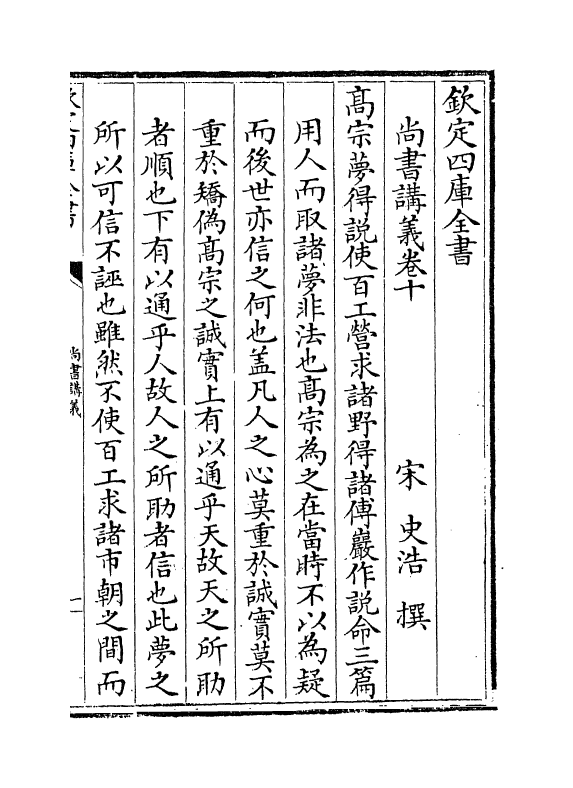 欽定四庫全書
尚書講義卷十
宋 史浩 撰
髙宗夢得說使百工營求諸野得諸傅巖作說命三篇
用人而取諸夢非法也髙宗為之在當時不以為疑
而後世亦信之何也盖凡人之心莫重於誠實莫不
重於矯偽髙宗之誠實上有以通乎天故天之所助
者順也下有以通乎人故人之所助者信也此夢之
所以可信不誣也雖然不使百工求諸市朝之間而
尚書講義
一